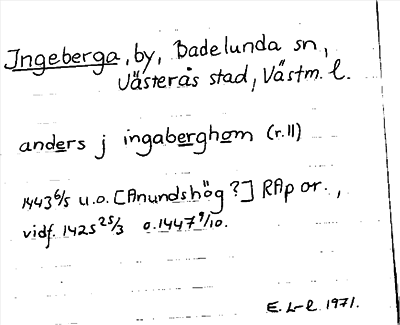 Ingeberga, by, Badelunda sn,
Västerås stad, Västm. l.
anders j ingaberghom (r. 11)
1443 6/5 u.o. [Anundshög?] RAp or.,
vidf. 1425 25/3 o. 1447 9/10.
E. L-l. 1971.